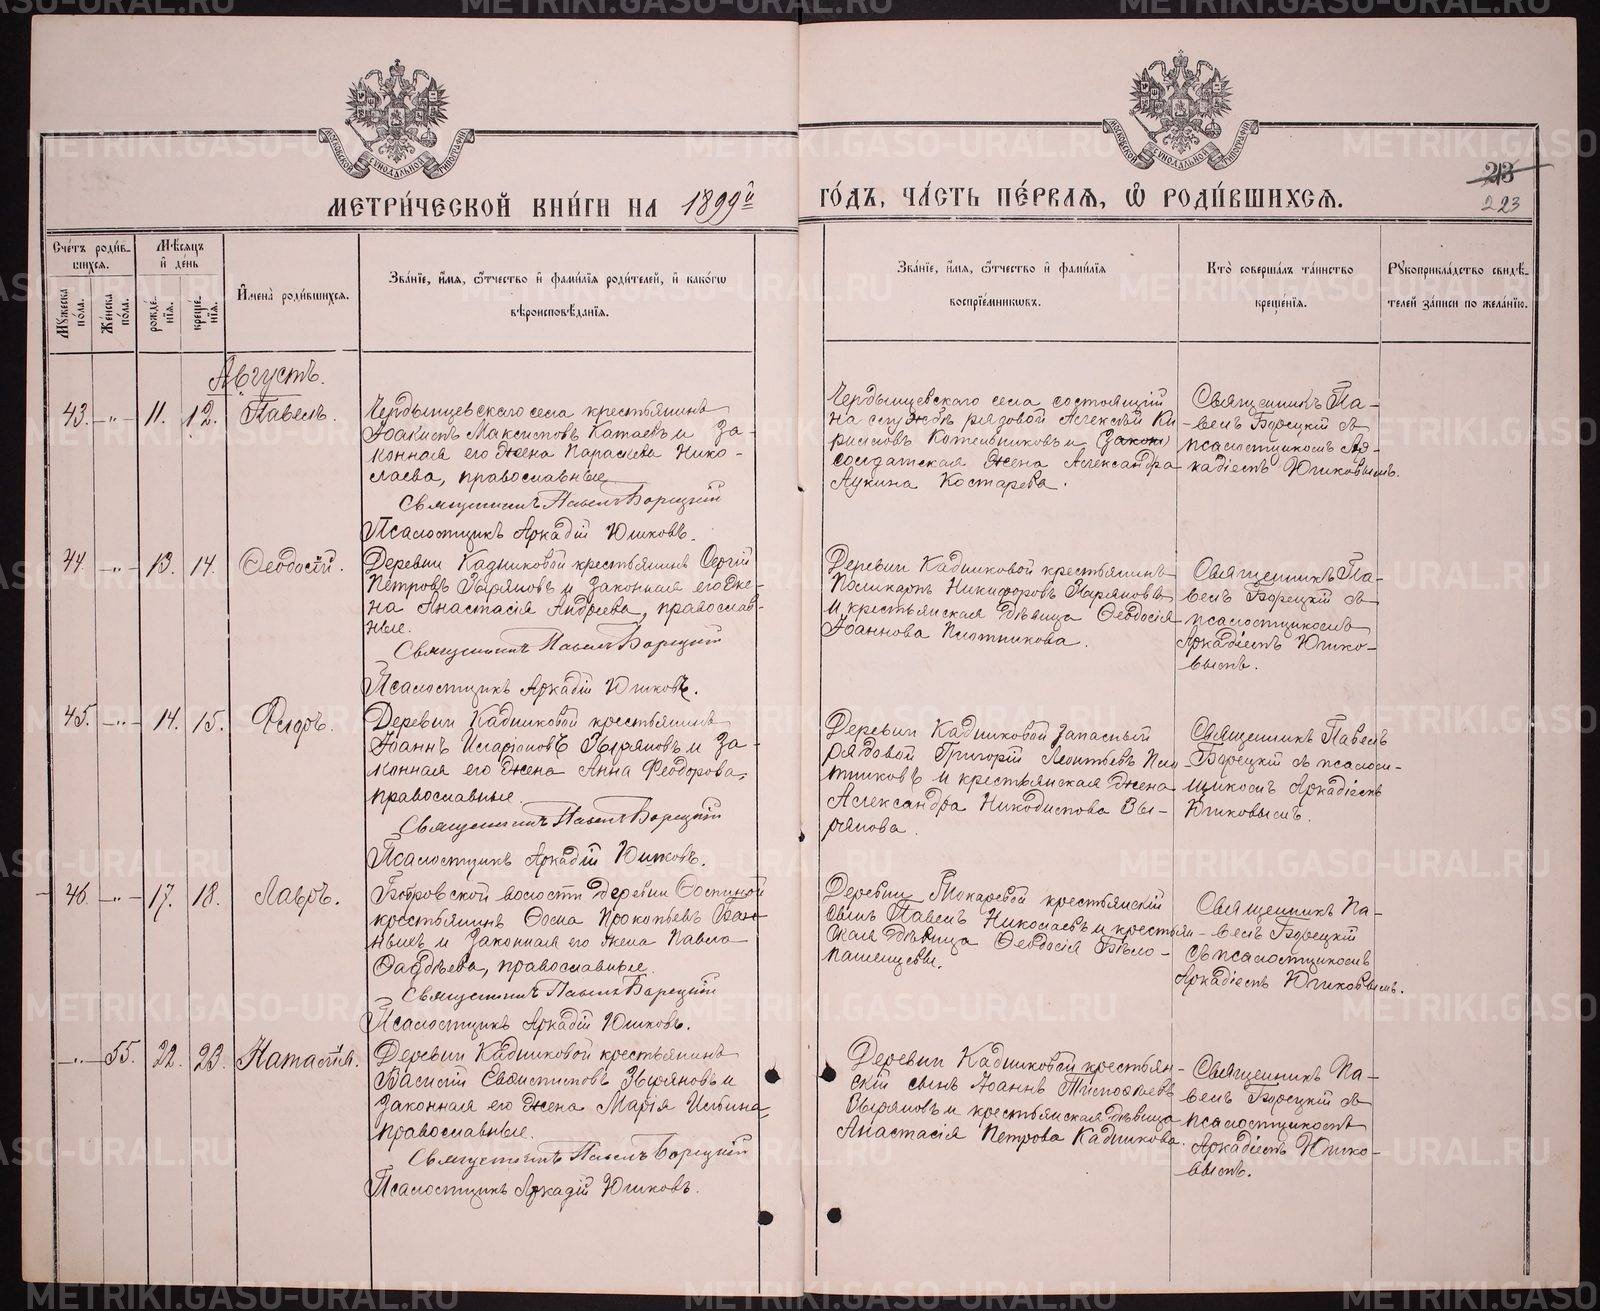 МЕТРИ́ЧЕСКОЙ КНИ́ГИ НА 1899й ГО́ДЪ, ЧА́СТЬ ПЕ́РВАѦ, Ѡ҆ РОДИ́ВШИХСѦ.
213
223
Сче́тъ роди́вшихсѧ.
Мѣ́сѧцъ и҆ де́нь
Мꙋ́жеска по́ла.
Же́нска по́ла.
рожде́нїѧ.
креще́нїѧ.
И҆мена̀ роди́вшихсѧ.
Зва́нїе, и҆́мѧ, ѻ҆́тчество и҆ фами́лїѧ роди́телей, и҆ како́гѡ
вѣроисповѣ́данїѧ.
Зва́нїе, и҆́мѧ, ѻ҆́тчество и҆ фами́лїѧ
воспрїе́мникѡвъ.
Кто̀ соверша́лъ та́инство
креще́нїѧ.
Рꙋкоприкла́дство свидѣ́-
телей за́писи по жела́нїю.
Августъ.
43. -"- 11. 12. Павелъ.
Чердынцевскаго села крестьянинъ
Іоакимъ Максимовъ Катаевъ и за-
конная его жена Параскева Нико-
лаева, православные
Священникъ Павелъ Борецкій
Псаломщикъ Аркадій Юшковъ.
Чердынцевскаго села состоящій
на службѣ рядовой Алексѣй Ки
риловъ Котельниковъ и (закон)
солдатская жена Александра
Лукина Костарева.
Священникъ Па-
велъ Борецкій съ
псаломщикомъ Ар-
кадіемъ Юшковымъ.
44. -"- 13. 14. Ѳеодосій.
Деревни Кадниковой крестьянинъ Сергій
Петровъ Зыряновъ и законная его же-
на Анастасія Андреева, православ-
ные.
Священникъ Павелъ Борецкій
Псаломщикъ Аркадій Юшковъ.
Деревни Кадниковой крестьянинъ
Поликарпъ Никифоровъ Зыряновъ
и крестьянская дѣвица Ѳеодосія
Іоаннова Плотникова.
Священникъ Па-
велъ Борецкій съ
псаломщикомъ
Аркадіемъ Юшко-
вымъ.
45. -"- 14. 15. Ѳеодоръ.
Деревни Кадниковой крестьянинъ
Іоаннъ Иларіоновъ Зыряновъ и за-
конная его жена Анна Ѳеодорова,
православные.
Священникъ Павелъ Борецкій
Псаломщикъ Аркадій Юшковъ.
Деревни Кадниковой запасный
рядовой Григорій Леонтьевъ Пло
тниковъ и крестьянская жена
Александра Никодимова Зы-
рянова.
Священникъ Павелъ
Борецкій съ псалом-
щикомъ Аркадіемъ
Юшковымъ.
46. -"- 17. 18. Лавръ.
волости деревни
крестьянинъ Прокопьевъ
и законная его жена Павла
православные.
Священникъ Павелъ Борецкій
Псаломщикъ Аркадій Юшковъ.
Деревни Токаревой крестьянскій
сынъ Павелъ Николаевъ и крестьян-
ская дѣвица Ѳеодосія Бѣло-
пашенцевы.
Священникъ Па-
велъ Борецкій
съ псаломщикомъ
Аркадіемъ Юшковымъ.
-"- 55. 22. 23. Наталія.
Деревни Кадниковой крестьянинъ
Василій Зыряновъ и
законная его жена Марія Ильина,
православные.
Священникъ Павелъ Борецкій
Псаломщикъ Аркадій Юшковъ.
Деревни Кадниковой крестьян-
скій сынъ Іоаннъ Тимоѳеевъ
Зыряновъ и крестьянская дѣвица
Анастасія Петрова Кадникова.
Священникъ Па-
велъ Борецкій съ
псаломщикомъ
Аркадіемъ Юшко-
вымъ.
METRIKI.GASO-URAL.RU